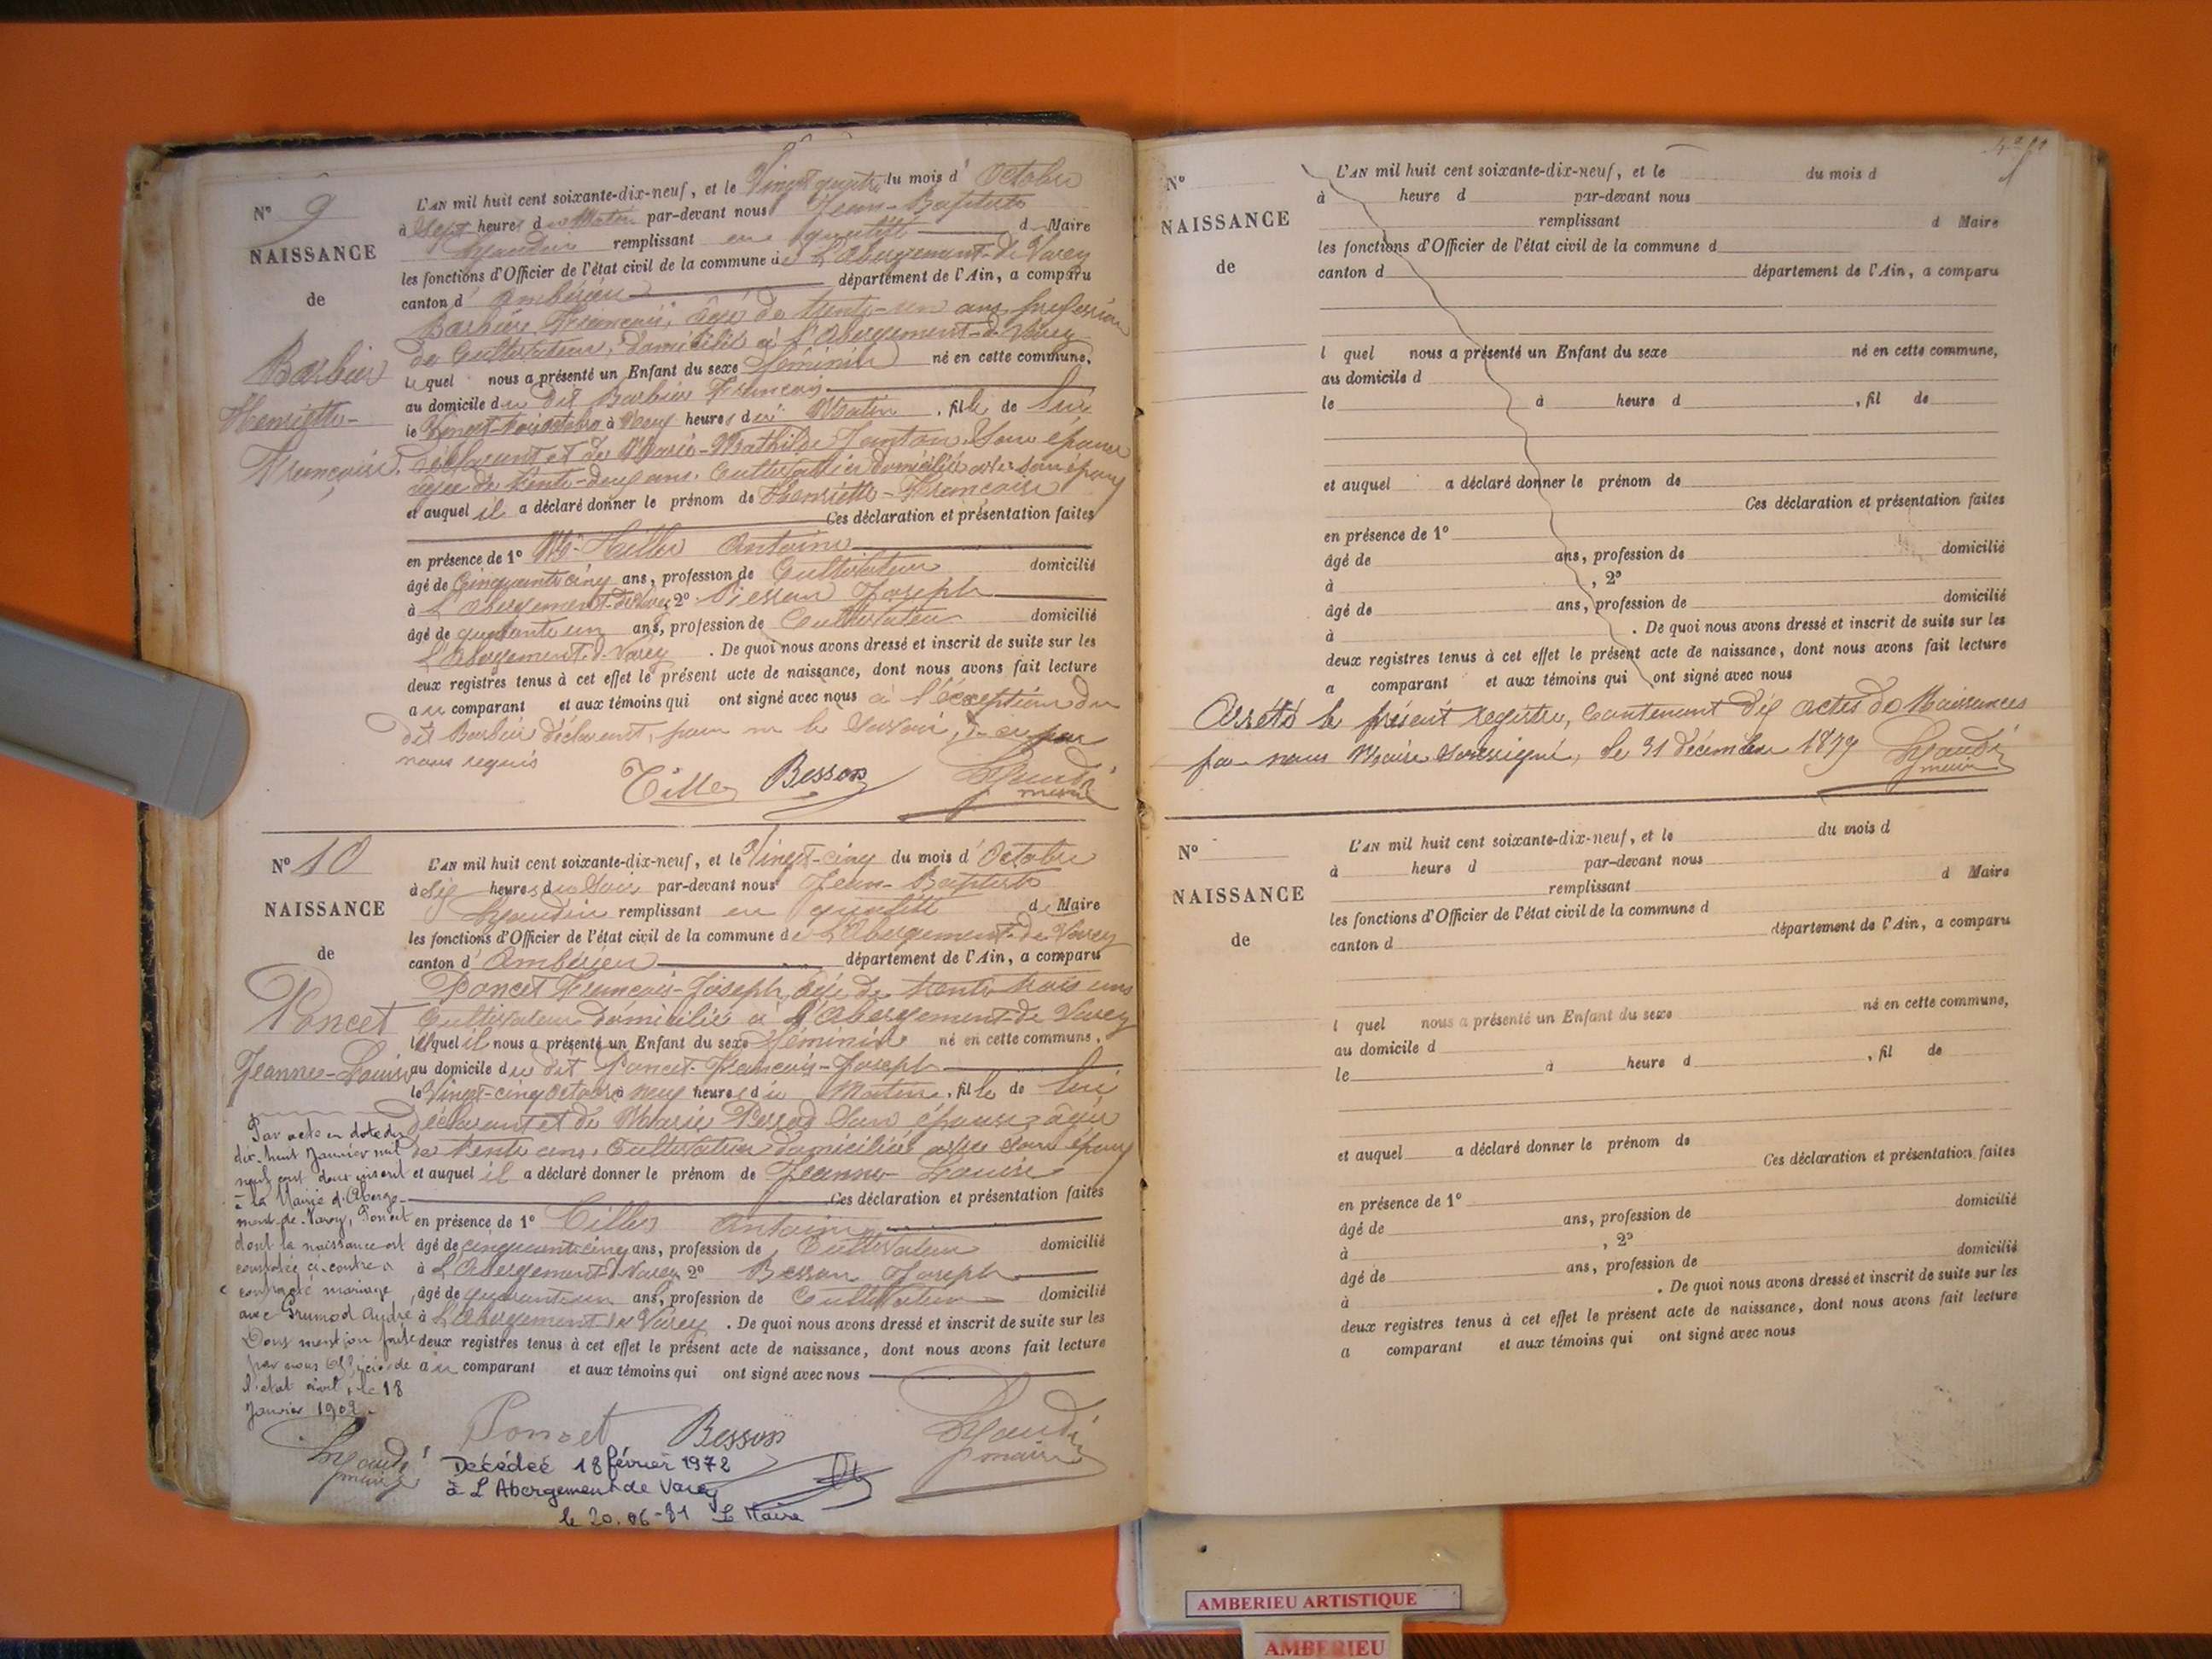 N° 9
NAISSANCE
de
Barbier
Henriette-
Françoise.
L'AN mil huit cent soixante-dix-neuf, et le Vingt quatre du mois d' Octobre
à Sept heures du Matin par-devant nous Jean-Baptiste
remplissant en qualité de Maire
les fonctions d'Officier de l'état civil de la commune de L'Abergement-de Varey
canton d' Ambérieu département de l'Ain, a comparu
Barbier François, âgé de trente-un ans, profession
de Cultivateur, domicilié à l'Abergement-de Varey
lequel nous a présenté un Enfant du sexe Féminin né en cette commune,
au domicile du dit Barbier François
le Vingt-trois Octobre à Neuf heures du Matin, fille de lui
déclarant et de Marie-Mathilde Son épouse
agée de trente-deux ans. Cultivatrice domiciliée avec son époux
et auquel il a déclaré donner le prénom de Henriette-Françoise
Ces déclaration et présentation faites
en présence de 1° Antoine
âgé de Cinquante cinq ans, profession de Cultivateur domicilié
à L'Abergement-de Varey 2° Besson Joseph
âgé de quarante un ans, profession de Cultivateur domicilié
L'Abergement-de Varey. De quoi nous avons dressé et inscrit de suite sur les
deux registres tenus à cet effet le présent acte de naissance, dont nous avons fait lecture
au comparant et aux témoins qui ont signé avec nous à l'exception du
dit Barbier déclarant, pour ne le savoir, de ce par
nous requis
Tille Besson
maire
N° 10
NAISSANCE
de
Poncet
Jeanne-Louise
L'AN mil huit cent soixante-dix-neuf, et le Vingt-cinq du mois d' Octobre
à Six heures du Soir par-devant nous Jean-Baptiste
remplissant en qualité de Maire
les fonctions d'Officier de l'état civil de la commune de L'Abergement-de Varey
canton d' Ambérieu département de l'Ain, a comparu
Poncet François-Joseph, âgé de trente trois ans
Cultivateur domicilié à L'Abergement-de Varey
lequel il nous a présenté un Enfant du sexe Féminin né en cette commune,
au domicile du dit Poncet François-Joseph
le Vingt-cinq Octobre à neuf heures du Matin, fille de lui
déclarant et de Marie Son épouse âgée
de trente ans, Cultivatrice domiciliée avec son époux
et auquel il a déclaré donner le prénom de Jeanne-Louise
Ces déclaration et présentation faites
en présence de 1° Tille Antoine
âgé de cinquante cinq ans, profession de Cultivateur domicilié
à L'Abergement-de Varey 2° Besson Joseph
âgé de quarante un ans, profession de Cultivateur domicilié
à L'Abergement de Varey. De quoi nous avons dressé et inscrit de suite sur les
deux registres tenus à cet effet le présent acte de naissance, dont nous avons fait lecture
au comparant et aux témoins qui ont signé avec nous
Par acte en date du
dix-huit Janvier mil
neuf cent deux inscrit
à la Mairie d'Aberge-
ment-de-Varey, Poncet
dont la naissance est
constatée ci-contre a
contracté mariage
avec Grumod André
Dont mention faite
par nous Officier de
l'état civil, le 18
Janvier 1902.
Poncet Besson
maire
maire
Décédée 18 février 1972
à L'Abergement de Varey
le 20.06-81 Le Maire
N°
NAISSANCE
de
L'AN mil huit cent soixante-dix-neuf, et le du mois d
à heure d par-devant nous
remplissant d Maire
les fonctions d'Officier de l'état civil de la commune d
canton d département de l'Ain, a comparu
l quel nous a présenté un Enfant du sexe né en cette commune,
au domicile d
le à heure d , fil de
et auquel a déclaré donner le prénom de
Ces déclaration et présentation faites
en présence de 1°
âgé de ans, profession de domicilié
à , 2°
âgé de ans, profession de domicilié
à . De quoi nous avons dressé et inscrit de suite sur les
deux registres tenus à cet effet le présent acte de naissance, dont nous avons fait lecture
a comparant et aux témoins qui ont signé avec nous
Arrêté le présent registre, Contenant dix actes de Naissances
par nous Maire soussigné, le 31 décembre 1879
maire
N°
NAISSANCE
de
L'AN mil huit cent soixante-dix-neuf, et le du mois d
à heure d par-devant nous
remplissant d Maire
les fonctions d'Officier de l'état civil de la commune d
canton d département de l'Ain, a comparu
l quel nous a présenté un Enfant du sexe né en cette commune,
au domicile d
le à heure d , fil de
et auquel a déclaré donner le prénom de
Ces déclaration et présentation faites
en présence de 1°
âgé de ans, profession de domicilié
à , 2°
âgé de ans, profession de domicilié
à . De quoi nous avons dressé et inscrit de suite sur les
deux registres tenus à cet effet le présent acte de naissance, dont nous avons fait lecture
a comparant et aux témoins qui ont signé avec nous
AMBERIEU ARTISTIQUE
AMBERIEU